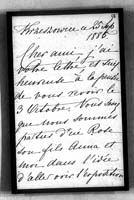 Krzeszowice 25 7bre
1886.
Cher ami, j'ai
votre lettre et suis
heureuse à la pensée
de vous revoir le
3 Octobre. Vous savez
que nous sommes
parties d'ici Rose
son fils Anna et
moi dans l'idée
d'aller voir l'exposition